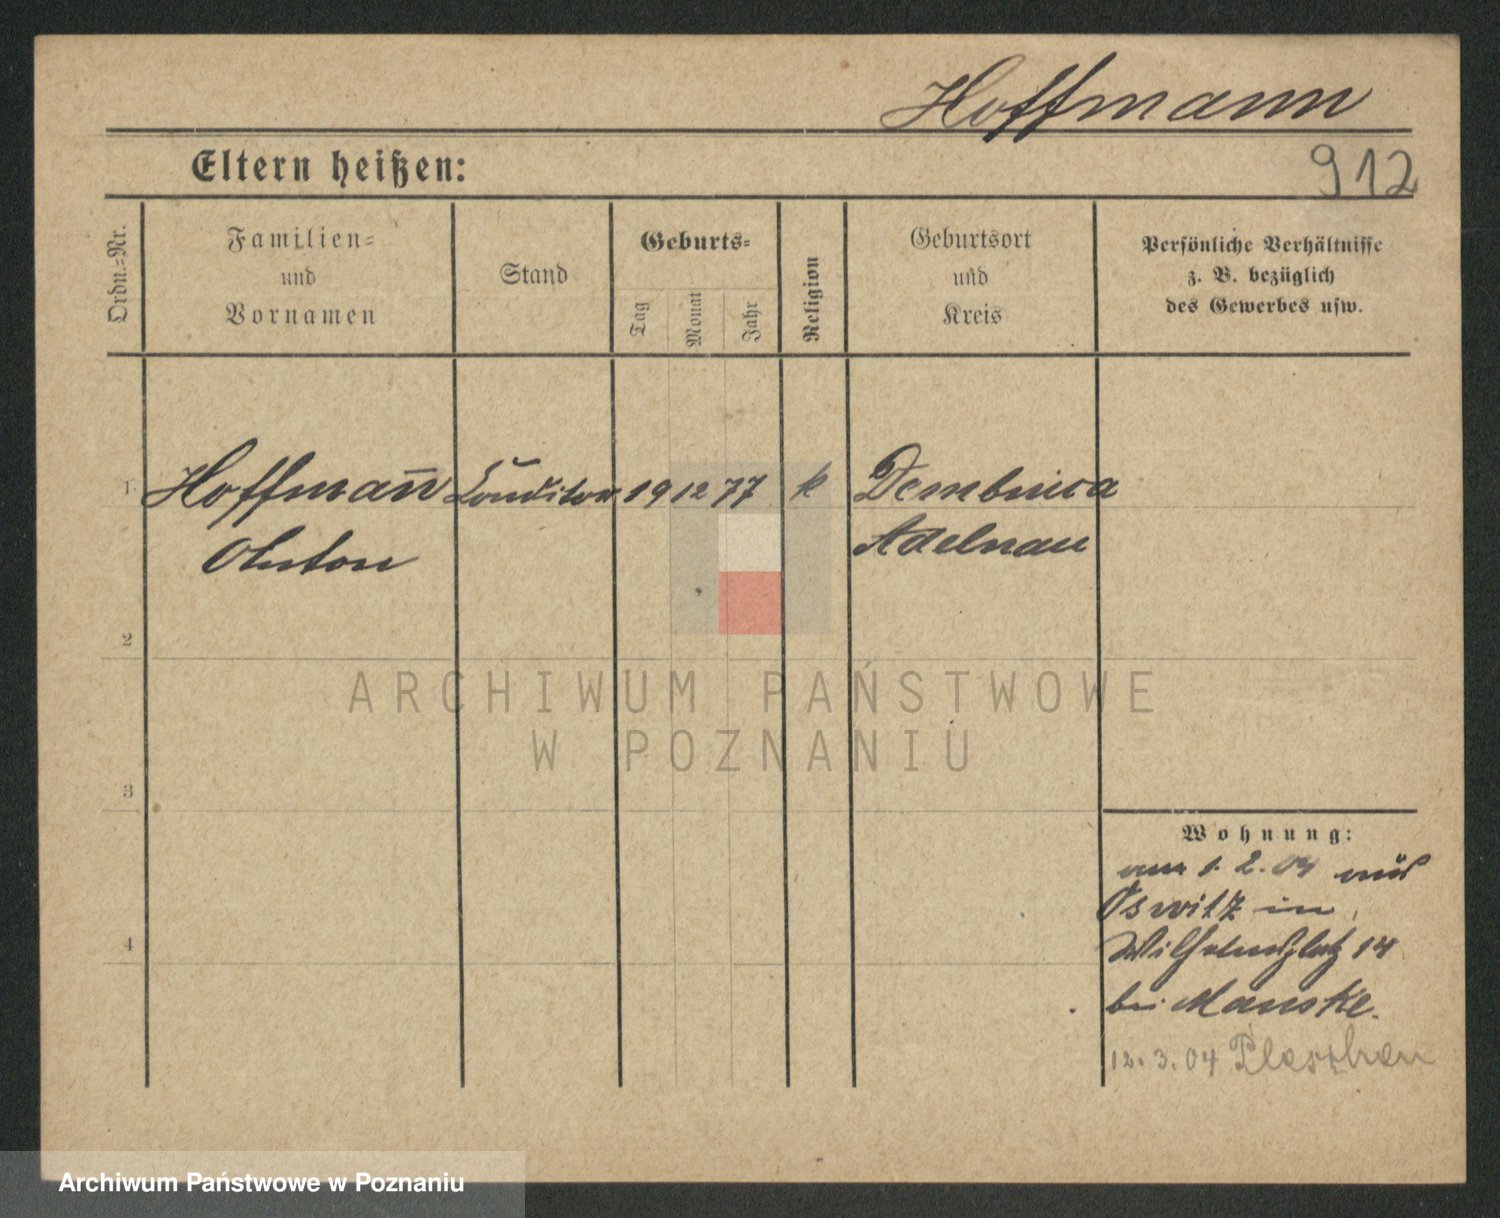 Hoffmann
Eltern heißen:
912
Ordn.-Nr.
Familien-
und
Vornamen
Stand
Geburts-
Tag
Monat
Jahr
Religion
Geburtsort
und
Kreis
Persönliche Verhältnisse
z. B. bezüglich
des Gewerbes usw.
1 Hoffman̄ Conditor 19 12 77 k Dembnica
Anton Adelnau
2
ARCHIWUM PAŃSTWOWE
W POZNANIU
3
Wohnung:
am 1. 2. 04 aus
Oswitz in
Wilhelmsplatz 14
4
bei Manske.
12.3.04 Pleschen
Archiwum Państwowe w Poznaniu